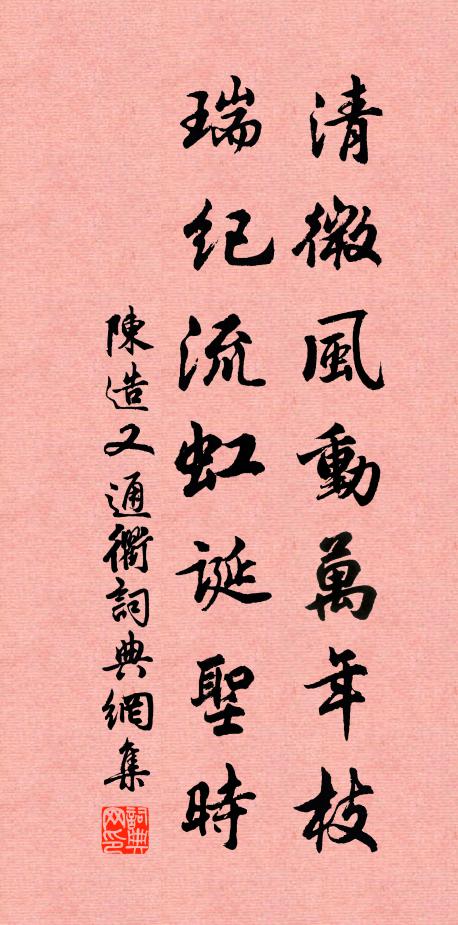 清微風動萬年枝
瑞紀流虹誕聖時
陳造又通衢詞典網集
詞典网印